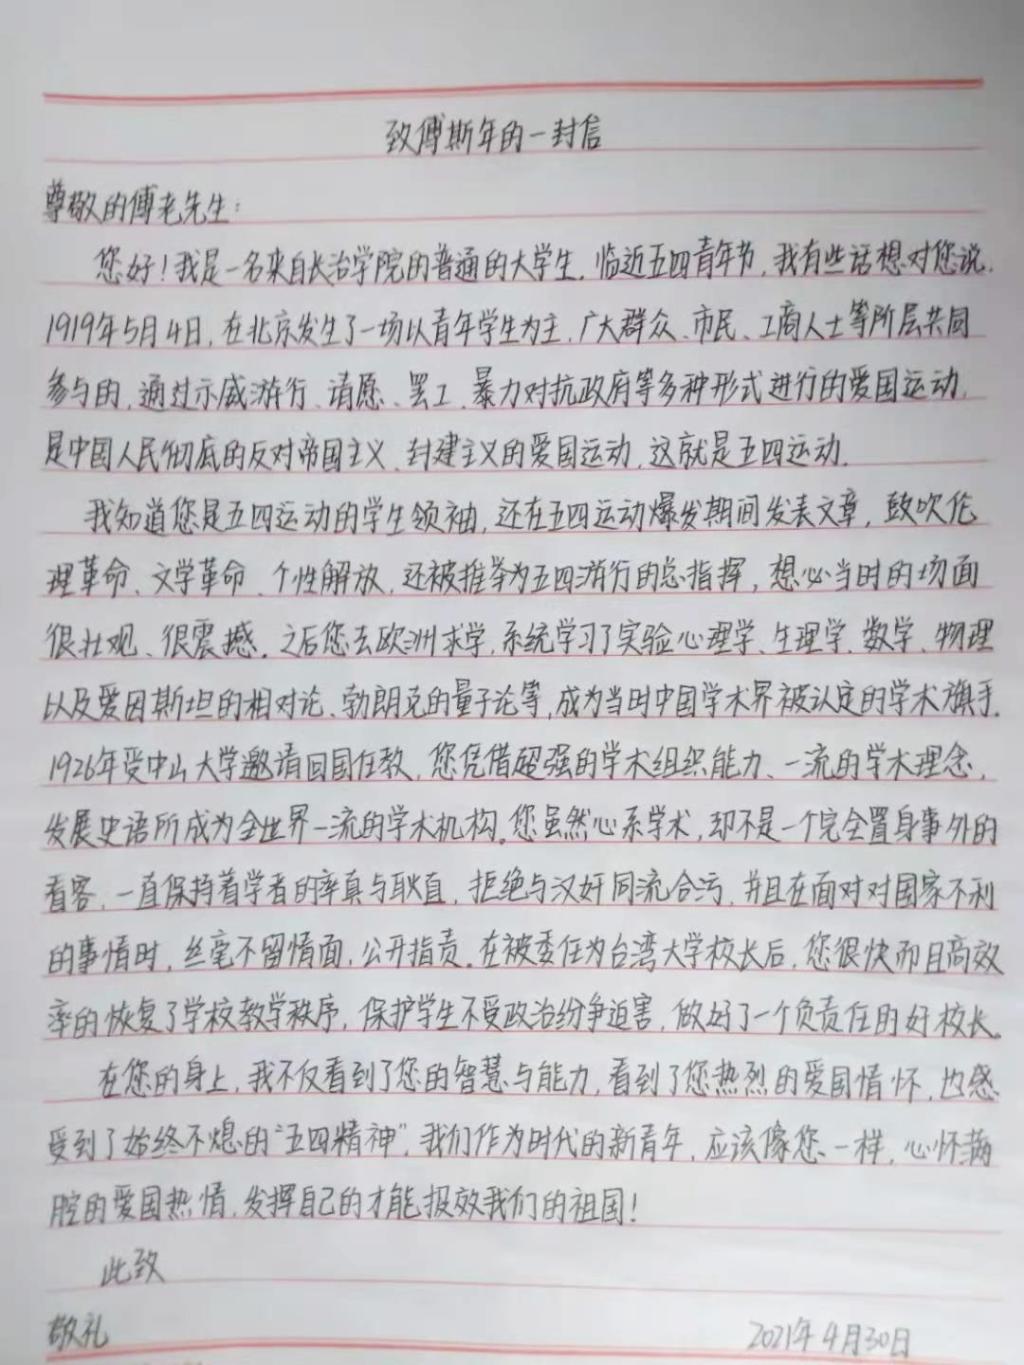 致傅斯年的一封信
尊敬的傅老先生：
您好！我是一名来自长治学院的普通的大学生，临近五四青年节，我有些话想对您说，
1919年5月4日，在北京发生了一场以青年学生为主，广大群众、市民、工商人士等阶层共同
参与的，通过示威游行、请愿、罢工、暴力对抗政府等多种形式进行的爱国运动，
是中国人民彻底的反对帝国主义、封建主义的爱国运动，这就是五四运动，
我知道您是五四运动的学生领袖，还在五四运动爆发期间发表文章，鼓吹伦
理革命、文学革命、个性解放，还被推举为五四游行的总指挥，想必当时的场面
很壮观、很震撼。之后您去欧洲求学，系统学习了实验心理学、生理学、数学、物理
以及爱因斯坦的相对论、勃朗克的量子论等，成为当时中国学术界被认定的学术旗手。
1926年受中山大学邀请回国任教，您凭借超强的学术组织能力、一流的学术理念，
发展史语所成为全世界一流的学术机构。您虽然心系学术，却不是一个完全置身事外的
看客，一直保持着学者的率真与耿直，拒绝与汉奸同流合污，并且在面对对国家不利
的事情时，丝毫不留情面，公开指责。在被委任为台湾大学校长后，您很快而且高效
率的恢复了学校教学秩序，保护学生不受政治纷争迫害，做好了一个负责任的好校长。
在您的身上，我不仅看到了您的智慧与能力，看到了您热烈的爱国情怀，也感
受到了始终不熄的“五四精神”，我们作为时代的新青年，应该像您一样，心怀满
腔的爱国热情，发挥自己的才能报效我们的祖国！
此致
敬礼
2021年4月30日